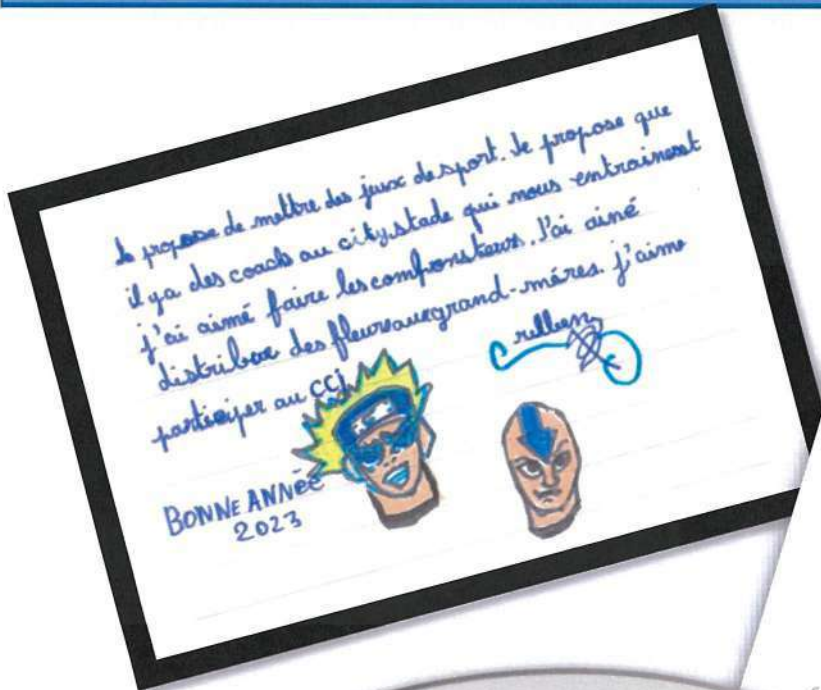 Je propose de mettre des jeux de sport. Je propose que
il ya des coachs au city stade qui nous entrainent
j'ai aimé faire les componsteurs. J'ai aimé
distribuer des fleurs aux grand-mères. j'aime
participer au CCJ
BONNE ANNÉE
2023